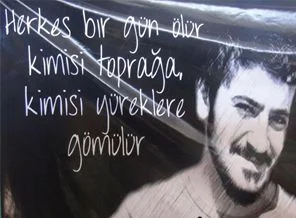 Herkes bir gün ölür
kimisi toprağa,
kimisi yüreklere
gömülür